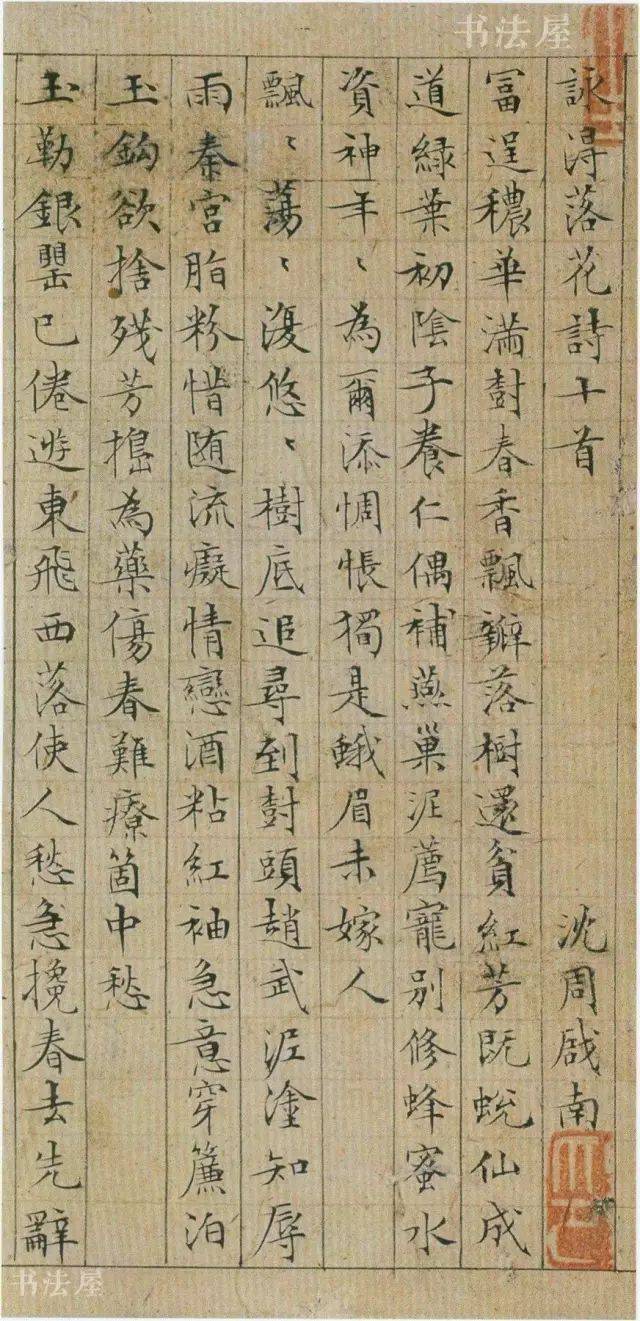 书法屋
詠淂落花詩十首 沈周啟南
冨逞穠華滿尌春香飄瓣落樹還貧紅芳既蛻仙成
道緑葉初陰子養仁偶補燕巢泥薦寵別修蜂蜜水
資神年ヽ為爾添惆悵獨是蛾眉未嫁人
飄ヽ蕩ヽ復悠ヽ樹底追尋到尌頭趙武泥塗知辱
雨秦宮脂粉惜随流癡情戀酒粘紅袖急意穿簾泊
玉鈎欲捨殘芳搗為藥傷春難療箇中愁
玉勒銀罌已倦遊東飛西落使人愁急攙春去先辭
书法屋